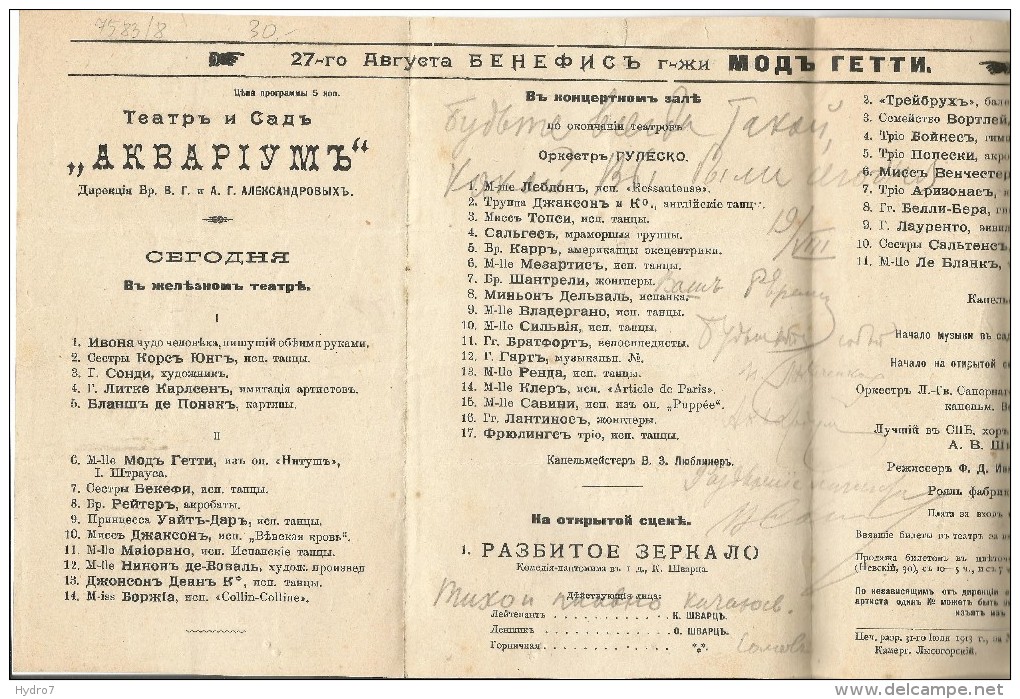 7583/8 30,-
27-го Августа БЕНЕФИСЪ г-жи МОДЪ ГЕТТИ.
Цѣна программы 5 коп.
Театръ и Садъ
„АКВАРІУМЪ“
Дирекція Бр. В. Г. и А. Г. АЛЕКСАНДРОВЫХЪ.
СЕГОДНЯ
Въ желѣзномъ театрѣ.
I
1. Ивона чудо человѣка, пишущій обѣими руками.
2. Сестры Корсъ Юнгъ, исп. танцы.
3. Г. Сонди, художникъ.
4. Г. Литке Карлсенъ, имитація артистовъ.
5. Бланшъ де Понакъ, картины.
II
6. M-lle Модъ Гетти, изъ оп. «Нитушъ»,
І. Штрауса.
7. Сестры Бекефи, исп. танцы.
8. Бр. Рейтеръ, акробаты.
9. Принцесса Уайтъ-Даръ, исп. танцы.
10. Миссъ Джаксонъ, исп. „Вѣвская кровь“.
11. M-lle Маіорано, исп. Испанскіе танцы.
12. M-lle Нинонъ де-Воваль, худож. произвед
13. Джонсонъ Деанъ К°, исп. танцы.
14. M-iss Боржіа, исп. «Collin-Colline».
Въ концертномъ залѣ
по окончаніи театровъ
Будьте всегда такой,
Оркестръ ГУЛЕСКО.
какой Вы были
1. M-me Леблонъ, исп. «Ressauteuse».
2. Труппа Джаксонъ и К°., англійскіе танцы.
3. Миссъ Топси, исп. танцы.
4. Сальгесъ, мраморныя группы.
19/VIII
5. Бр. Карръ, американцы эксцентрики.
6. M-lle Мезартисъ, исп. танцы.
7. Бр. Шантрели, жонглеры.
Вашъ
8. Миньонъ Дельваль, испанка.
9. M-lle Владергано, исп. танцы.
10. M-lle Сильвія, исп. танцы.
11. Гг. Братфортъ, велосипедисты.
12. Г. Гартъ, музыкальн. №.
13. M-lle Ренда, исп. танцы.
14. M-lle Клеръ, исп. «Article de Paris».
15. M-lle Савини, исп. изъ оп. „Puppée“.
16. Гг. Лантиносъ, жонглеры.
17. Фрюлингсъ тріо, исп. танцы.
Капельмейстеръ В. З. Люблинеръ.
На открытой сценѣ.
1. РАЗБИТОЕ ЗЕРКАЛО
Комедія-пантомима въ 1 д., К. Шварца.
Дѣйствующія лица:
Тихо и плавно качаясь.
Лейтенантъ . . . . . . . . . . . К. ШВАРЦЪ.
Деншикъ . . . . . . . . . . . . О. ШВАРЦЪ.
Горничная . . . . . . . . . . . *⁎*
2. «Трейбрухъ», бале
3. Семейство Вортлей,
4. Тріо Бойнесъ, гим
5. Тріо Попески, акро
6. Миссъ Венчестер
7. Тріо Аризонасъ,
8. Гг. Белли-Бера,
9. Г. Лауренто, эквил
10. Сестры Сальтенсъ,
11. M-lle Ле Бланкъ,
Капель
Начало музыки въ сад
Начало на открытой с
Оркестръ Л.-Гв. Сапернаг
капельм. В
Лучшій въ СПБ. хор
А. В. Ш
Режиссеръ Ф. Д. Ив
Рояль фабрик
Плата за входъ
Взявшіе билеты въ театръ за
Продажа билетовъ въ цвѣточ
(Невскій, 30), съ 10—5 ч., и съ 7
По независящимъ отъ дирекціи
артиста одинъ № можетъ быть
изъятъ из
Печ. разр. 31-го Іюля 1913 г., за
Камерг. Лысогорскій.
Hydro7
www.delcampe.net